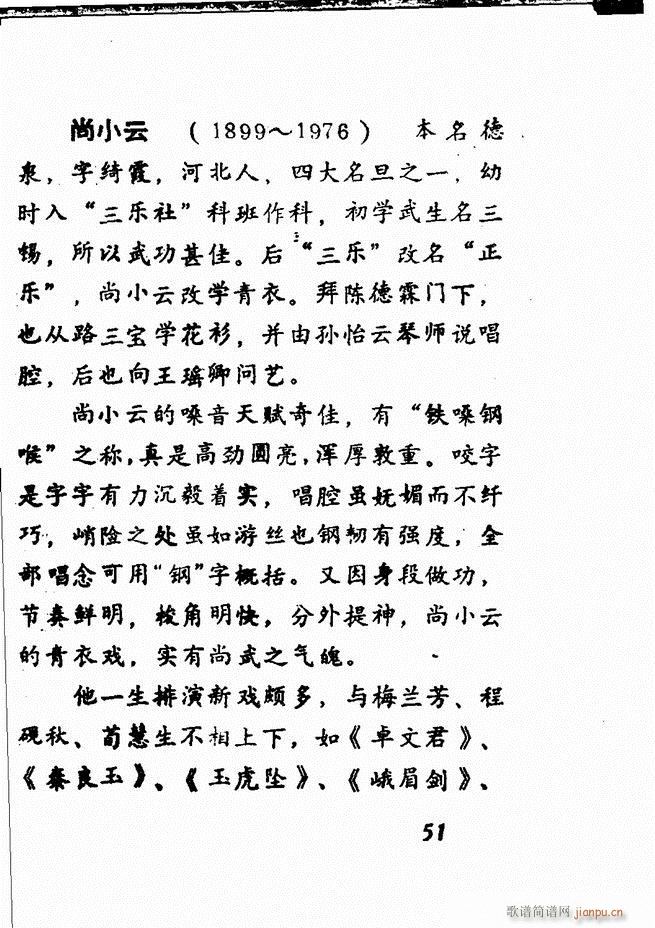 尚小云 （1899～1976） 本名德
泉，字绮霞，河北人，四大名旦之一，幼
时入“三乐社”科班作科，初学武生名三
锡，所以武功甚佳。后“三乐”改名“正
乐”，尚小云改学青衣。拜陈德霖门下，
也从路三宝学花衫，并由孙怡云琴师说唱
腔，后也向王瑶卿问艺。
尚小云的嗓音天赋奇佳，有“铁嗓钢
喉”之称，真是高劲圆亮，浑厚敦重。咬字
是字字有力沉毅着实，唱腔虽妩媚而不纤
巧，峭险之处虽如游丝也钢韧有强度，全
部唱念可用“钢”字概括。又因身段做功，
节奏鲜明，棱角明快，分外提神，尚小云
的青衣戏，实有尚武之气魄。
他一生排演新戏颇多，与梅兰芳、程
砚秋、荀慧生不相上下，如《卓文君》、
《秦良玉》、《玉虎坠》、《峨眉剑》、
51
歌谱简谱网 jianpu.cn